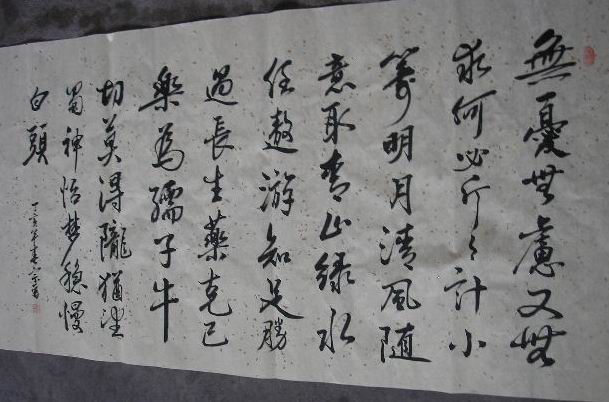 無憂無慮又無
求何必斤々計小
籌明月清風随
意取青山綠水
任遨游知足勝
過長生藥克己
樂為孺子牛
切莫得隴猶望
蜀神怡梦穩慢
白頭
丁亥年